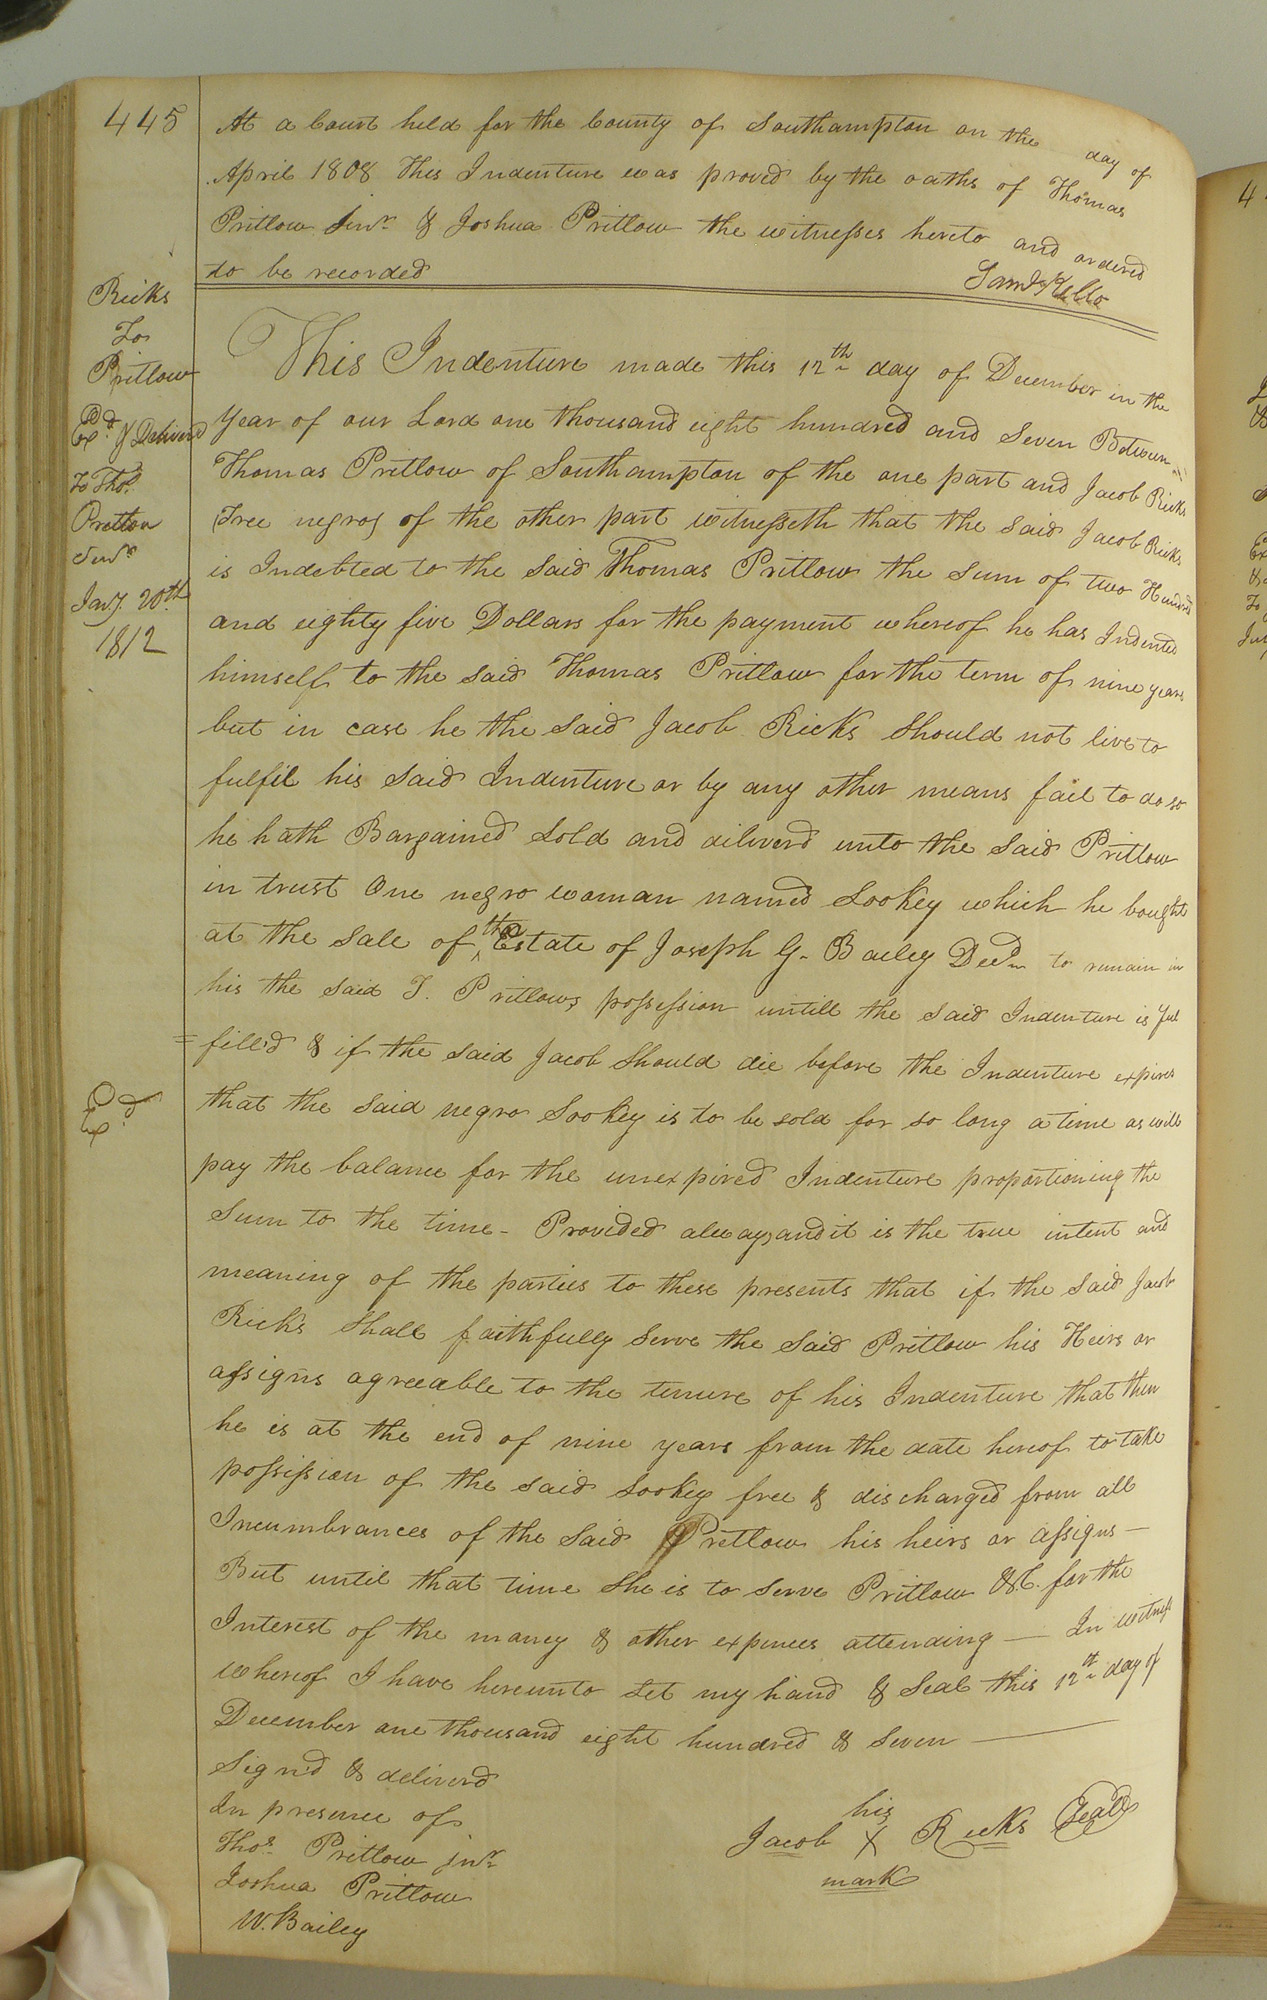 445
At a Court held for the County of Southampton on the day of
April 1808 This Indenture was proved by the oaths of Thomas
Pritlow Junr & Joshua Pritlow the witnesses hereto and ordered
to be recorded
Saml Kello
Ricks
To
Pritlow
Exd & Deliverd
To Thos
Pretlow
Senr
Jany 20th
1812
This Indenture made this 12th day of December in the
Year of our Lord one thousand eight hundred and Seven Between
Thomas Pritlow of Southampton of the one part and Jacob Ricks
(Free negro) of the other part witnesseth that the said Jacob Ricks
is Indebted to the said Thomas Pritlow the Sum of two Hundred
and eighty five Dollars for the payment whereof he has Indented
himself to the said Thomas Pritlow for the term of nine years
but in case he the said Jacob Ricks Should not live to
fulfil his said Indenture or by any other means fail to do so
he hath Bargained Sold and diliverd unto the Said Pritlow
in trust One negro woman named Sookey which he bought
at the Sale of the Estate of Joseph G. Bailey Decd to remain in
his the said T. Pritlows possession untill the said Indenture is ful
=filld & if the said Jacob Should die before the Indenture expires
Exd
that the said negro Sookey is to be sold for so long a time as will
pay the balance for the unexpired Indenture proportioning the
Sum to the time - Provided always and it is the true intent and
meaning of the parties to these presents that if the said Jacob
Ricks Shall faithfully Serve the Said Pritlow his Heirs or
assigns agreeable to the tenure of his Indenture that then
he is at the end of nine years from the date hereof to take
possission of the said Sookey free & discharged from all
Incumbrances of the Said Pretlow his heirs or assigns -
But until that time She is to Serve Pritlow &C. for the
Interest of the money & other expences attending - In witness
whereof I have hereunto Set my hand & Seal this 12th day of
December one thousand eight hundred & Seven
Sign'd & deliverd
In presence of
Thos Pritlow junr
Joshua Pritlow
W. Bailey
his
Jacob X Ricks Seal
mark